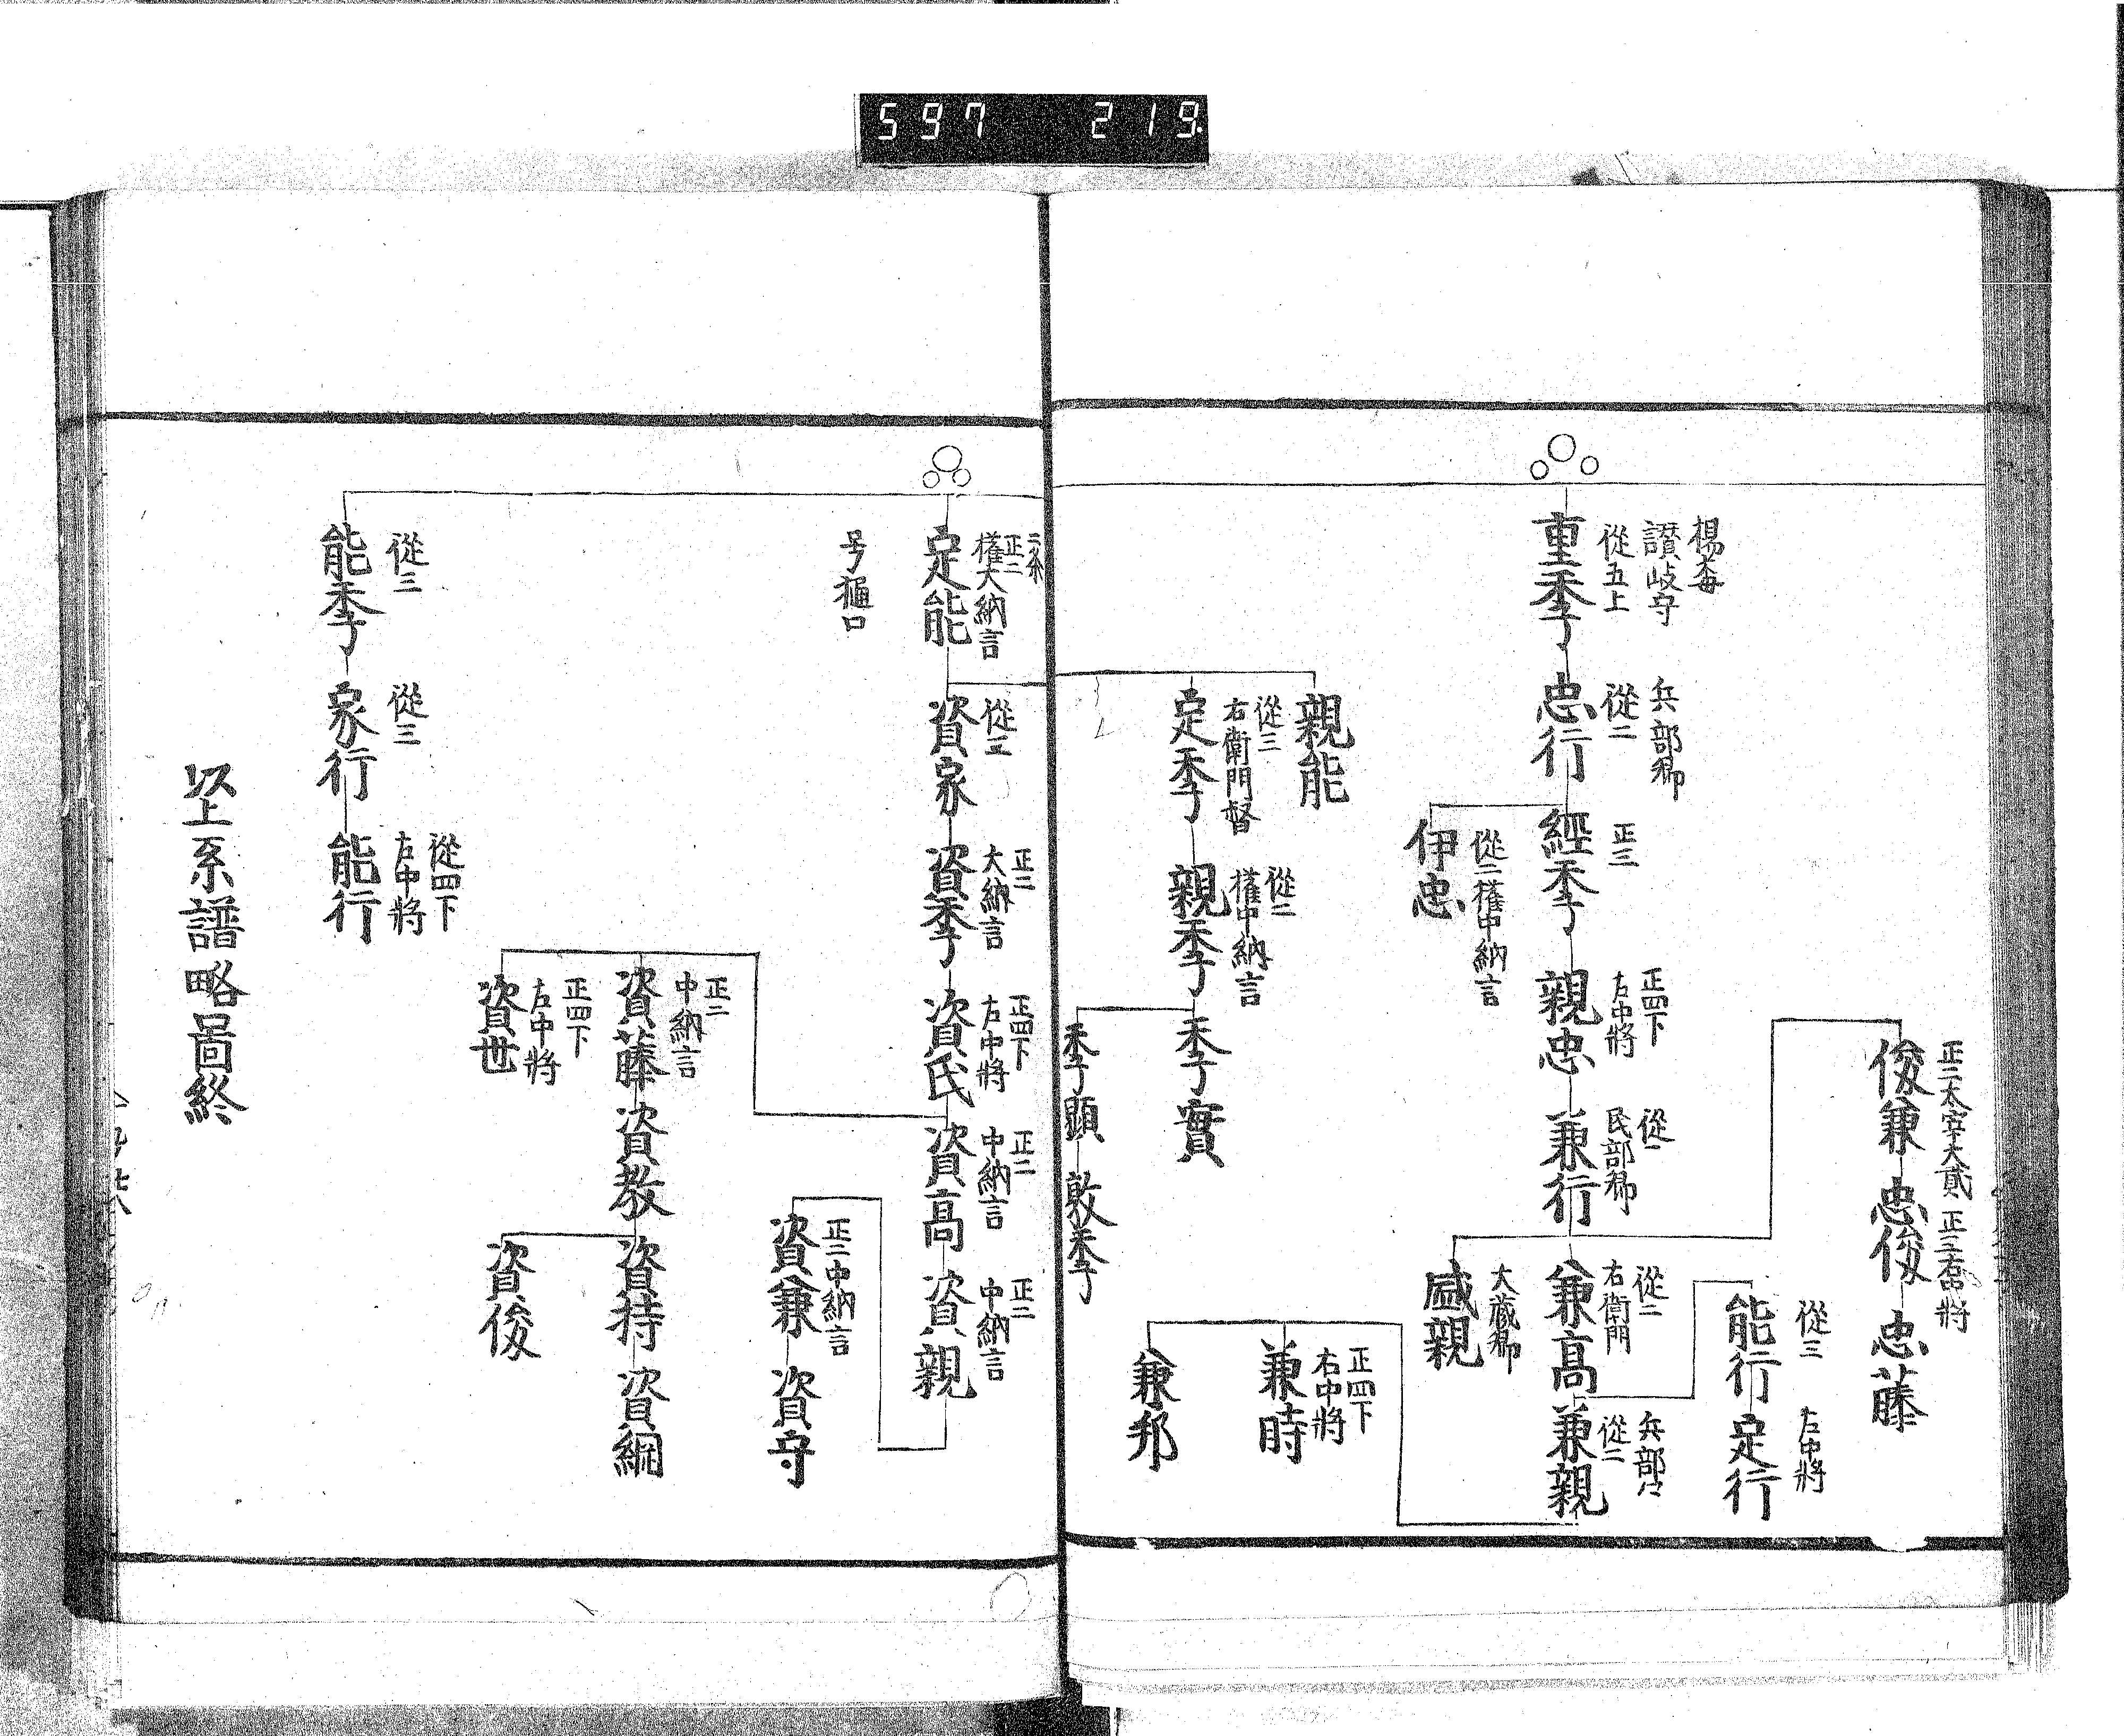 597 219
俊兼 忠俊 忠藤
正二太宰大貳 正三右中將
能行 定行
從三 左中將
楊梅
讃岐守
從五上
重季 忠行 經季 親忠 兼行 兼高 兼親
兵部卿
從二
正三
正四下
左中將
從二
民部卿
從二
右衛門
兵部卿
從二
伊忠
從二權中納言
盛親
大蔵卿
兼時
正四下
右中將
兼邦
親能
定季 親季 季實
從三
右衛門督
從二
權中納言
季顯 敦季
二条
正二
權大納言
定能 資家 資季 資氏 資高 資親
从三
正二
大納言
正四下
左中將
正二
中納言
正二
中納言
号樋口
資兼 資守
正二中納言
資藤 資教 資持 資綱
正二
中納言
資世
正四下
左中將
資俊
能季 家行 能行
從三
從三
從四下
左中將
以上系譜略圖終